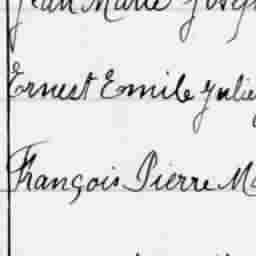 Jean Marie Joseph
Ernest Emile Julie
François Pierre Ma